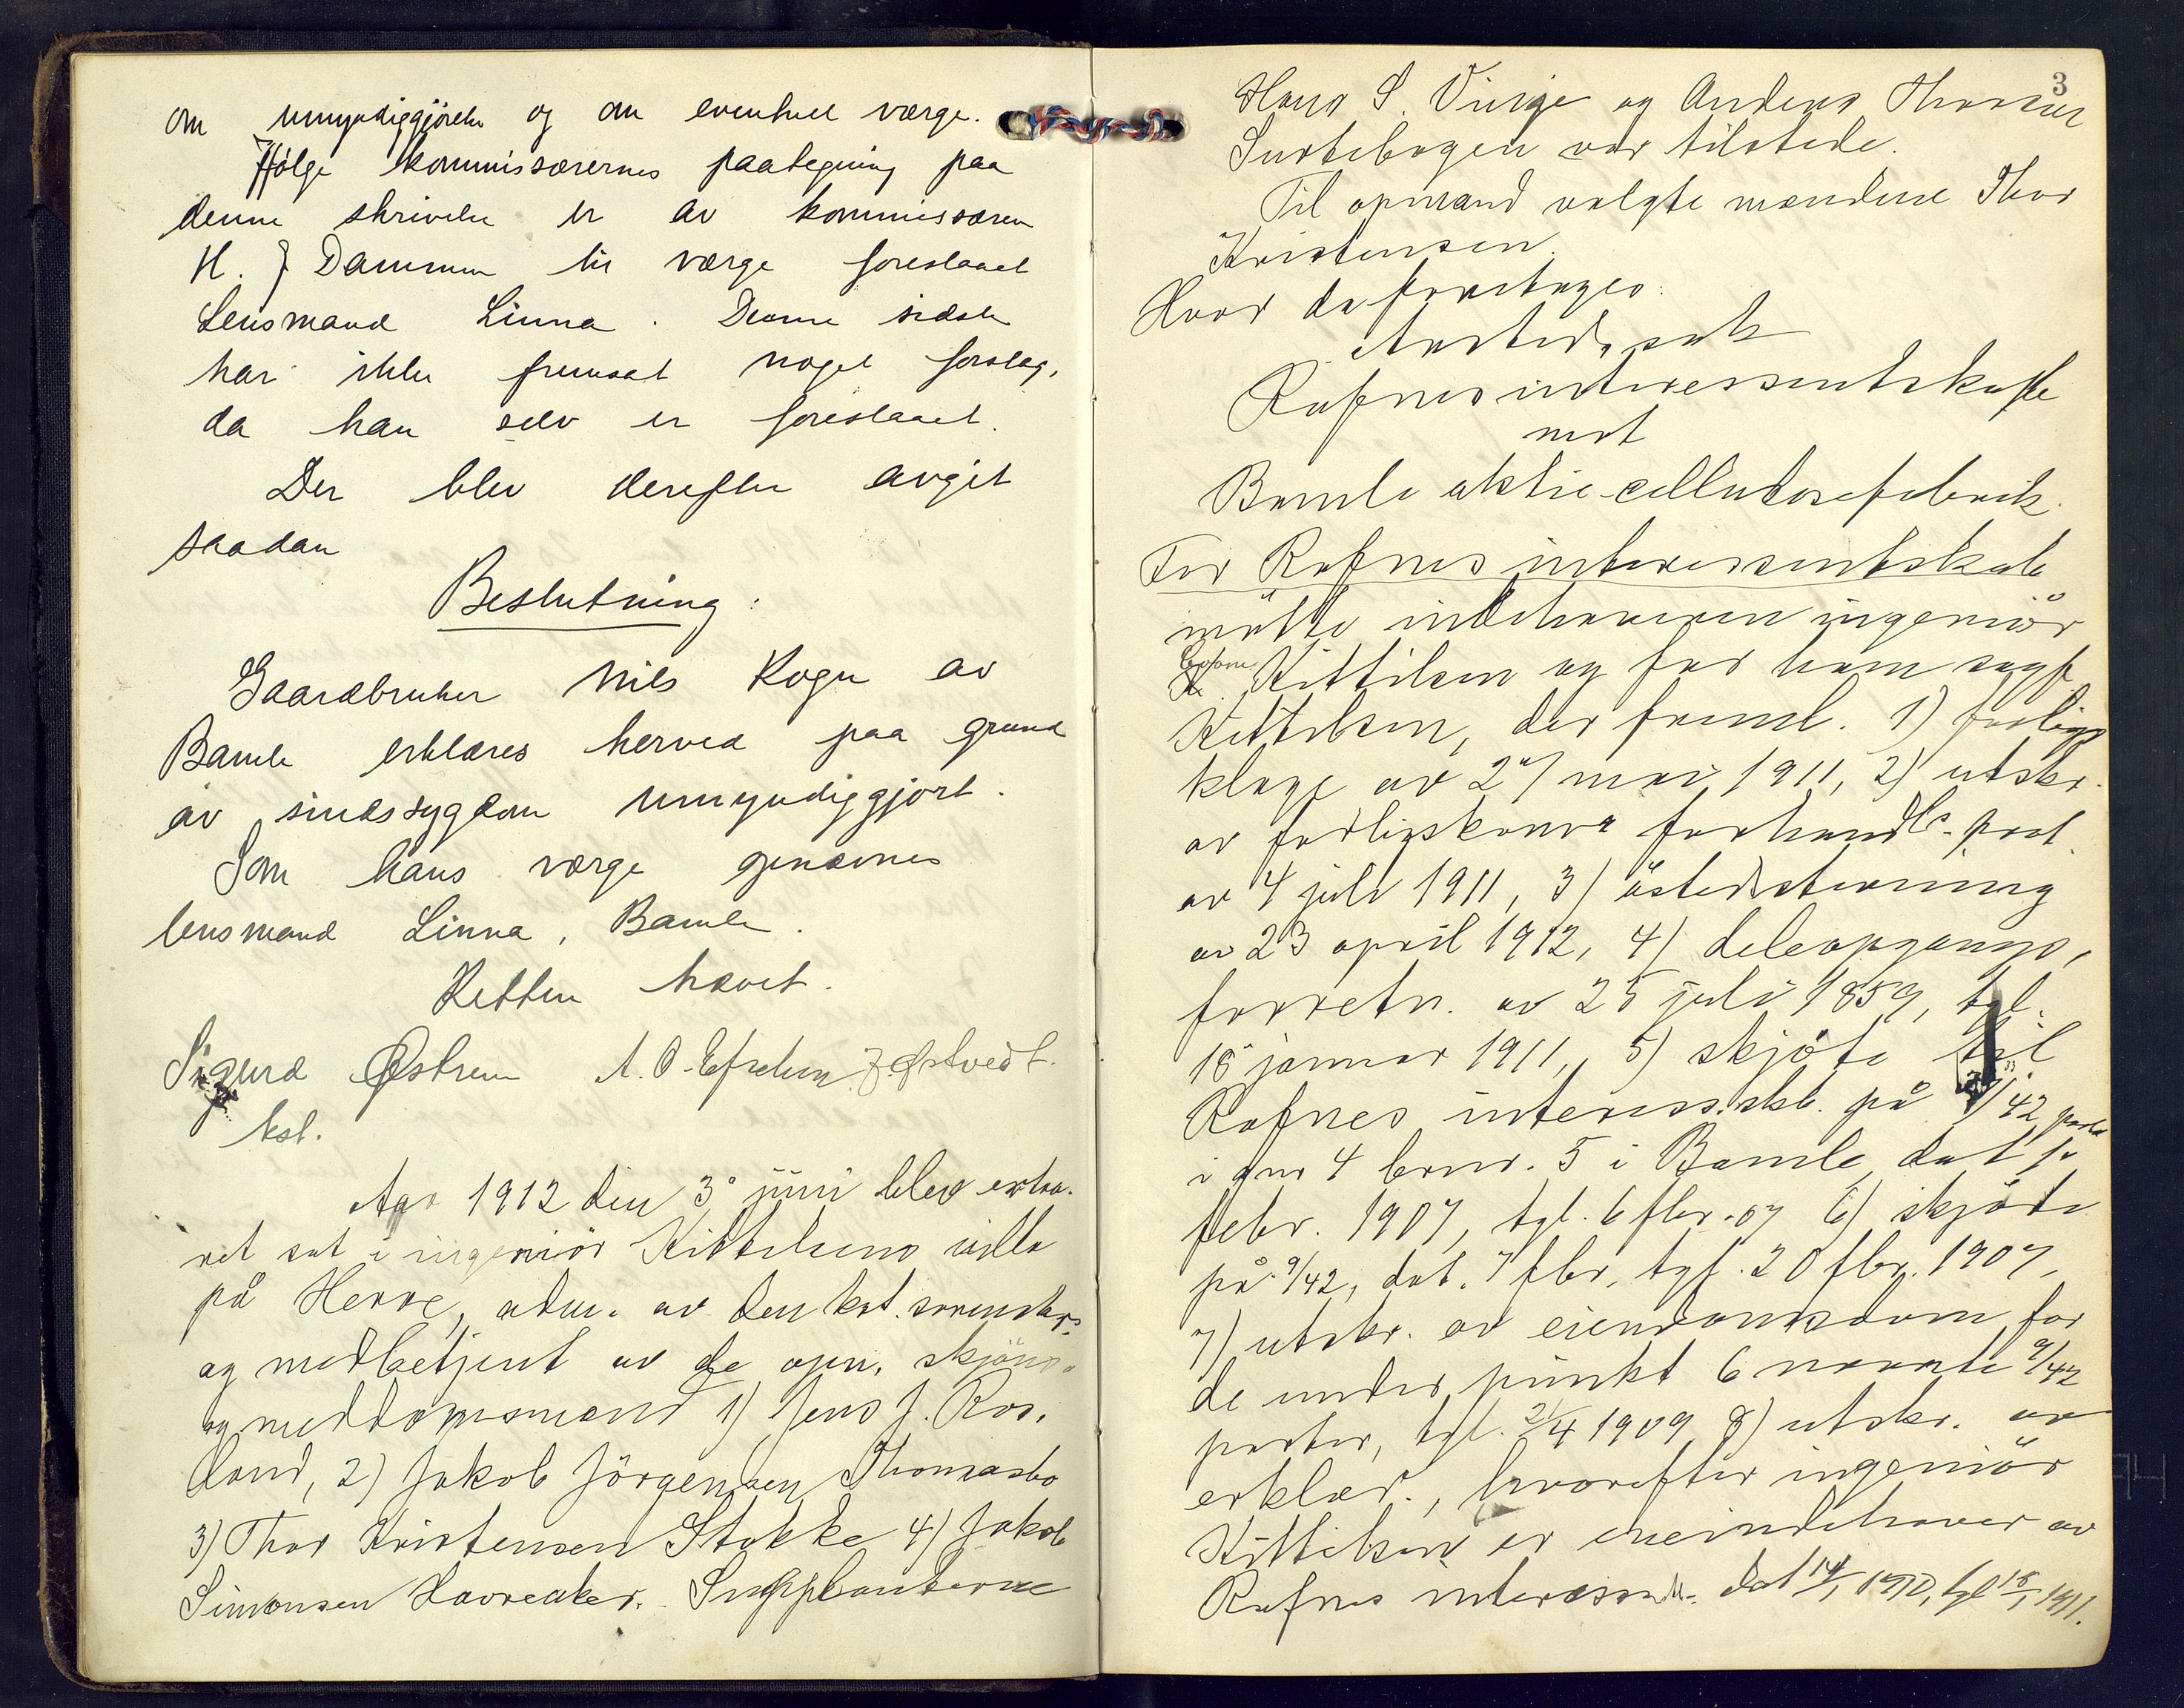 om umyndiggjörelse og om eventuel værge.
Ifölge kommissærernes paategning paa
denne skrivelse er av kommissæren
H. J. Dammen til værge foreslaaet
Lensmand Linna. Denne sidste
har ikke fremsat noget forslag,
da han selv er foreslaaet.
Der blev derefter avgit
saadan
Beslutning:
Gaardbruker Nils Rogn av
Bamle erklæres herved paa grund
av sindssygdom umyndiggjort.
Som hans værge opnævnes
lensmand Linna, Bamle.
Retten hævet.
Sigurd Østrem A. O. Z. Østvedt.
kst.
Aar 1912 den 3 juni blev extra-
ret sat i ingeniör Kittilsens villa
på Herre, adm. av den kst. sorenskr.
og medbetjent av de opn. skjöns-
og meddomsmænd 1) Jens J. Ros-
land, 2) Jakob Jörgensen Thomasbo
3) Thor Kristensen Stokke 4) Jakob
Simonsen Havreaker. Supleanterne
3
Hans S. Vinje og Anders Thorsen
Surtebogen var tilstede.
Til opmand valgte mændene Thor
Kristensen.
Hvor da foretages:
Aastedssak
Rafnes interessentskap
mot
Bamle aktie-cellulosefabrik.
For Rafnes interessentskab
mötte indehaveren ingeniör
Kittilsen og for ham sagf.
Kittilsen, der freml. 1) forligs
klage av 27 mai 1911, 2) utskr.
av forligskomm forhandls. prot.
av 4 juli 1911, 3) åstedsstevning
av 23 april 1912, 4) deleopgangs-
forretn. av 25 juli 1859, tgl.
18 januar 1911, 5) skjöte til
Rafnes interess.skb. på /42 parter
i gnr 4 brnr. 5 i Bamle, dat
febr. 1907, tgl. 6 fbr. 07 6) skjöte
på 9/42, dat. 7 fbr, tgl. 20 fbr. 1907,
7) utskr. av eiendomsdom for
de under punkt 6 nævnte 9/42
parter, tgl. 2/4 1909 8) utskr. av
erklær., hvorefter ingeniör
Kittilsen er eneindehaver av
Rafnes interessentsk. dat 14/1 1910, tgl 18/1 1911.